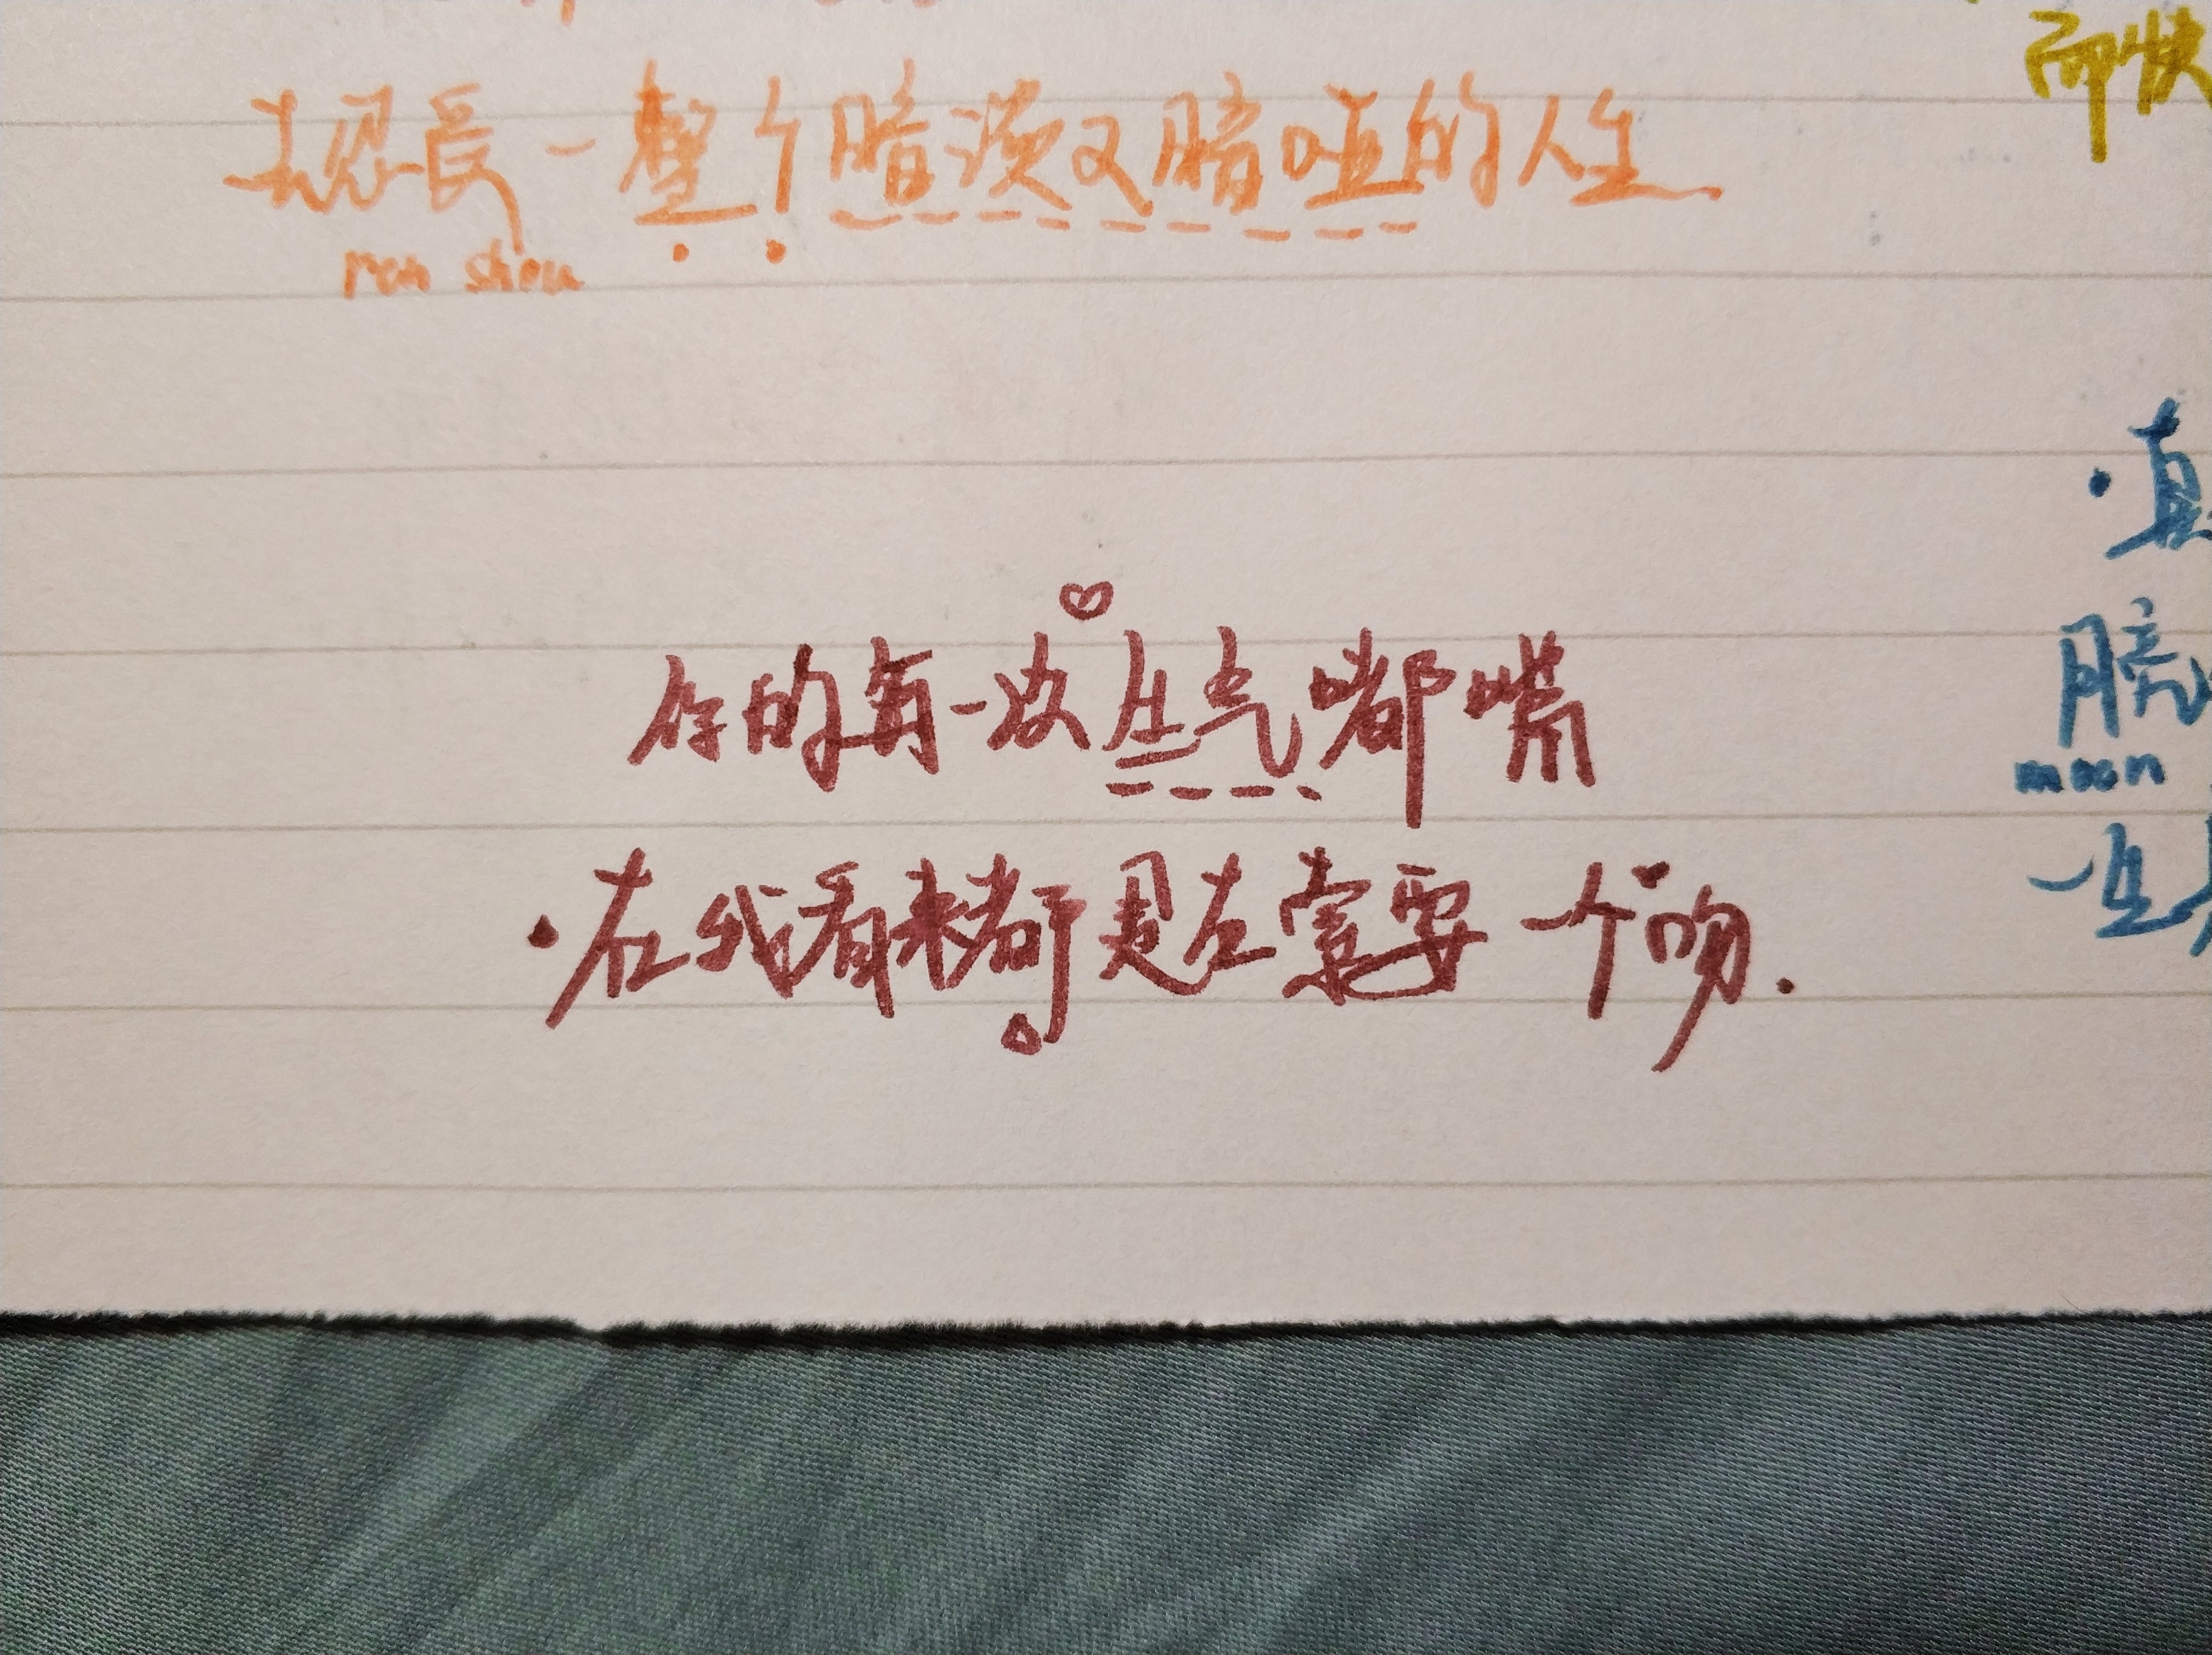 去忍受一整个暗淡又暗哑的人生
ren shou
而快
你的每一次生气嘟嘴
在我看来都是在索要一个吻.
·真
moon
一生